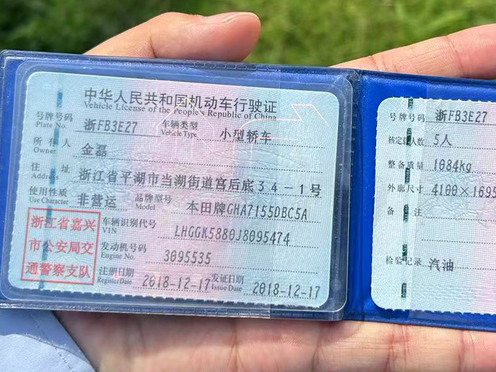 中华人民共和国机动车行驶证
Vehicle License of the People's Republic of China
号牌号码 浙FB3E27 车辆类型 小型轿车
Plate No. Vehicle Type
所有人 金磊
Owner
住址 浙江省平湖市当湖街道宫后底34-1号
Address
使用性质 非营运 品牌型号 本田牌GHA7155DBC5A
Use Character Model
浙江省嘉兴
市公安局交
通警察支队
车辆识别代号 LHGGK5880J8095474
VIN
发动机号码 3095535
Engine No.
注册日期 2018-12-17 发证日期 2018-12-17
Register Date Issue Date
号牌号码 浙FB3E27
核定载人数 5人
整备质量 1084kg
外廓尺寸 4100×1695
备注
检验记录 汽油